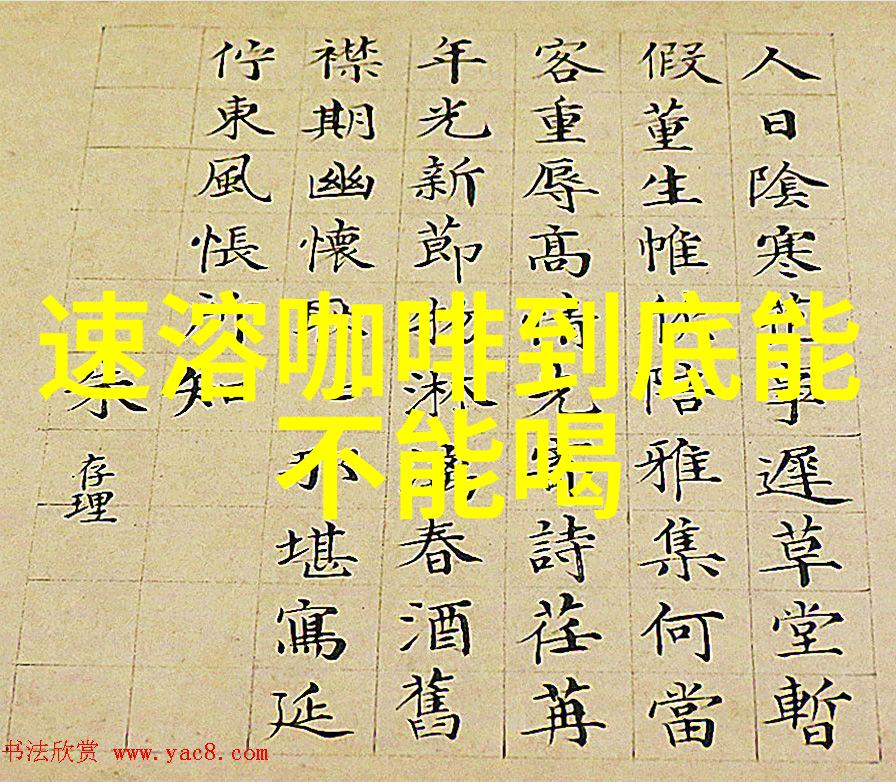 速溶咖啡到底能
不能喝
人日陰寒事遲草堂暫
假董生帷陪雅集何當
客重辱高情詩荏苒
年光新節物淋春酒舊
襟期幽懷不堪寫延
佇東風悵知
存理
书法欣赏 www.yac8.com